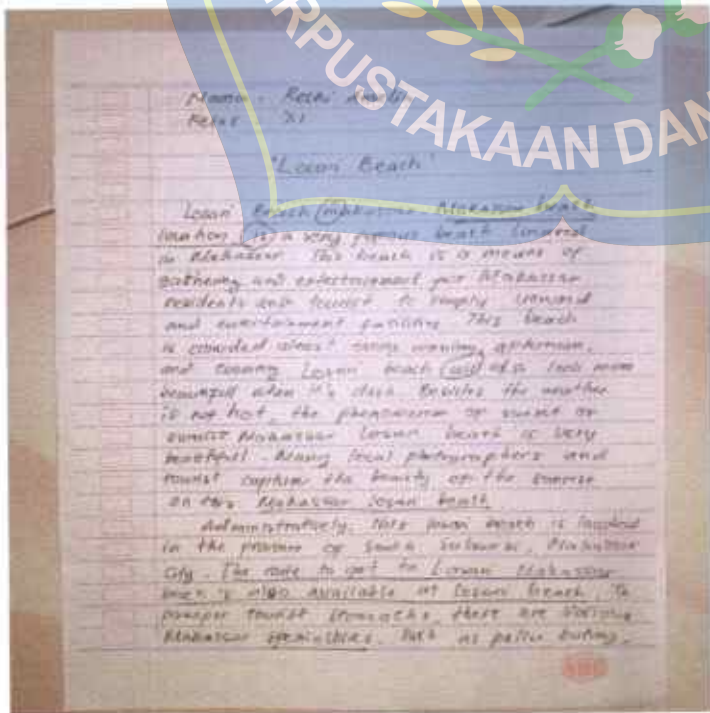 ERPUSTAKAAN DAN
Nama : Reski
Kelas : XI
"Losari Beach"
Losari Beach makassar Makassar beach
location is a very famous beach located
in Makassar. This beach is a means of
gathering and entertainment for Makassar
residents and tourist to simply unwind
and entertainment facilities. This beach
is crowded almost every morning, afternoon,
and evening Losari beach will also look more
beautiful when it's dark. Besides the weather
is not hot, the phenomenon of sunset or
sunrise Makassar Losari beach is very
beautiful. Many local photographers and
tourist capture the beauty of the sunrise
on this Makassar losari beach
Administratively, this losari beach is located
in the province of South Sulawesi, Makassar
City. The route to get to Losari Makassar
is also available at losari beach. To
pamper tourist stomachs, there are various
Makassar specialties. such as pallu butung,